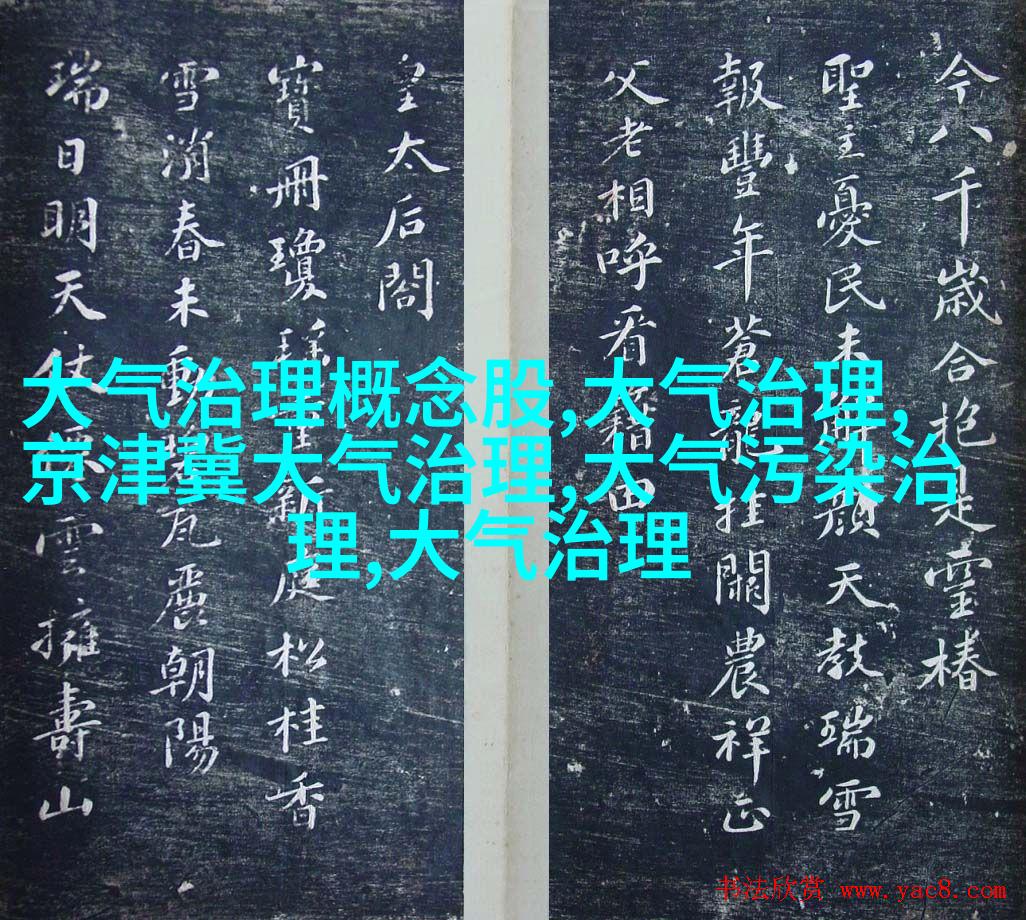 今八千歲合抱是靈椿
聖主憂民未解顏天教瑞雪
報豐年蒼龍挂闕農祥正
父老相呼看籍田
皇太后閣
寶冊瓊瑤重新庭松桂香
雪消春未動碧瓦麗朝陽
瑞日明天仗雲擁壽山
大气治理概念股,大气治理,
京津冀大气治理,大气污染治
理,大气治理
书法欣赏 www.yac8.com